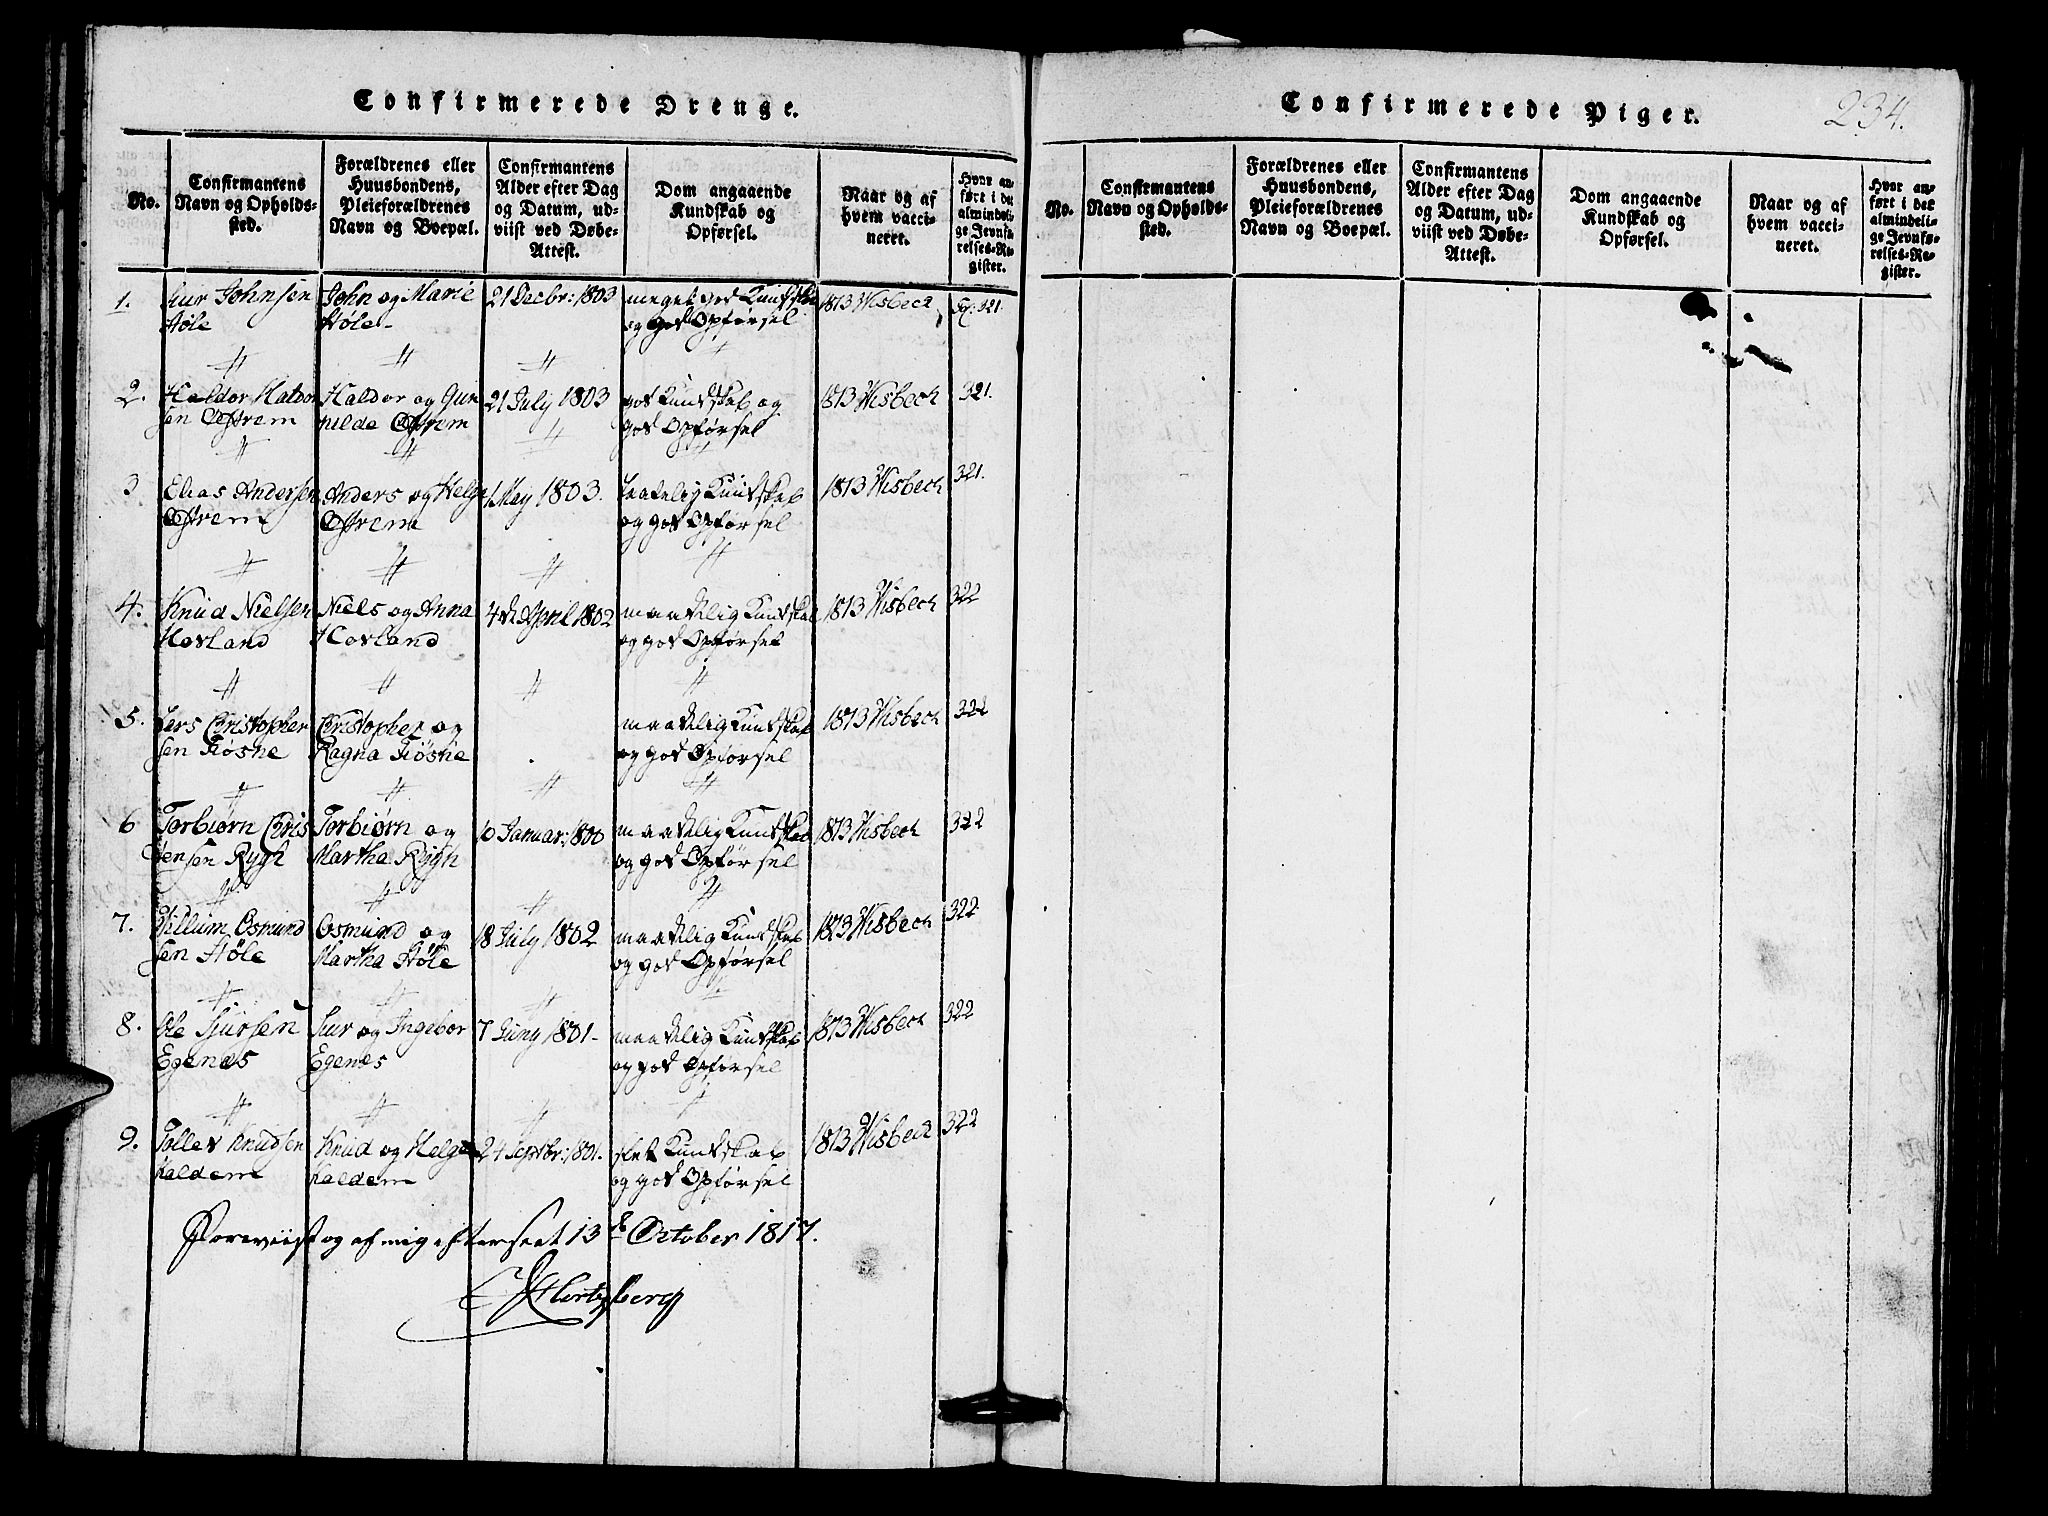 Confirmerede Drenge.
No.
Confirmantens
Navn og Opholds-
sted.
Forældrenes eller
Huusbondens,
Pleieforældrenes
Navn og Boepæl.
Confirmantens
Alder efter Dag
og Datum, ud-
viist ved Døbe-
Attest.
Dom angaaende
Kundskab og
Opførsel.
Naar og af
hvem vacci-
neret.
Hvor an-
ført i det
almindeli-
ge Jevnfø-
relses-Re-
gister.
1.
Siur Johnsen
Høle
John og Marie
Høle-
21 Decbr: 1803
meget god Kundskab
og god Opførsel
1813 Wisbech
321.
2.
Haldor Haldor
sen Østrem
Haldor og Gun
nilde Østrem
21 July 1803
god Kundskab og
god Opførsel
1813 Wisbech
321.
3
Elias Andersen
Østrem
Anders og Helge
Østrem
1 May 1803.
Kundskab
og god Opførsel
1813 Wisbech
321.
4.
Knud Nielsen
Hovland
Niels og Anna
Hovland
4de April 1802
maadelig Kundskab
og god Opførsel
1813 Wisbech
322
5.
Lars Christopher
sen Fiøsne
Christopher og
Ragna Fiøsne
maadelig Kundskab
og god Opførsel
1813 Wisbech
322
6
Torbiørn Chris
tensen Rygh
Torbiørn og
Martha Rygh
10 Januar: 1800
maadelig Kundskab
og god Opførsel
1813 Wisbech
322
7.
Villum Osmund
sen Høle
Osmund og
Martha Høle
18 July 1802
maadelig Kundskab
og god Opførsel
1813 Wisbech
322
8.
Ole Sjursen
Egenæs
Siur og Ingebor
Egenæs
7 Juny 1801-
maadelig Kundskab
og god Opførsel
1813 Wisbech
322
9.
Tollev Knudsen
Haldem
Knud og Helge
Haldem
24 Septbr: 1801.
slet Kundskab
og god Opførsel
1813 Wisbech
322
Foreviist og af mig efterseet 13de October 1817.
Hertzberg
Confirmerede Piger.
234.
No.
Confirmantens
Navn og Opholds-
sted.
Forældrenes eller
Huusbondens,
Pleieforældrenes
Navn og Boepæl.
Confirmantens
Alder efter Dag
og Datum, ud-
viist ved Døbe-
Attest.
Dom angaaende
Kundskab og
Opførsel.
Naar og af
hvem vacci-
neret.
Hvor an-
ført i det
almindeli-
ge Jevnfø-
relses-Re-
gister.